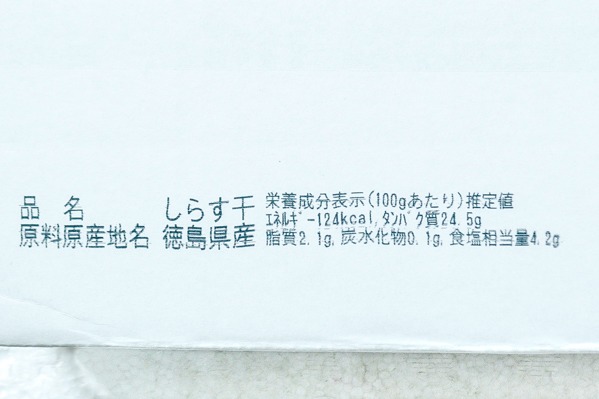 品 名 しらす干
原料原産地名 徳島県産
栄養成分表示(100gあたり)推定値
ｴﾈﾙｷﾞｰ124kcal,ﾀﾝﾊﾟｸ質24.5g
脂質2.1g,炭水化物0.1g,食塩相当量4.2g